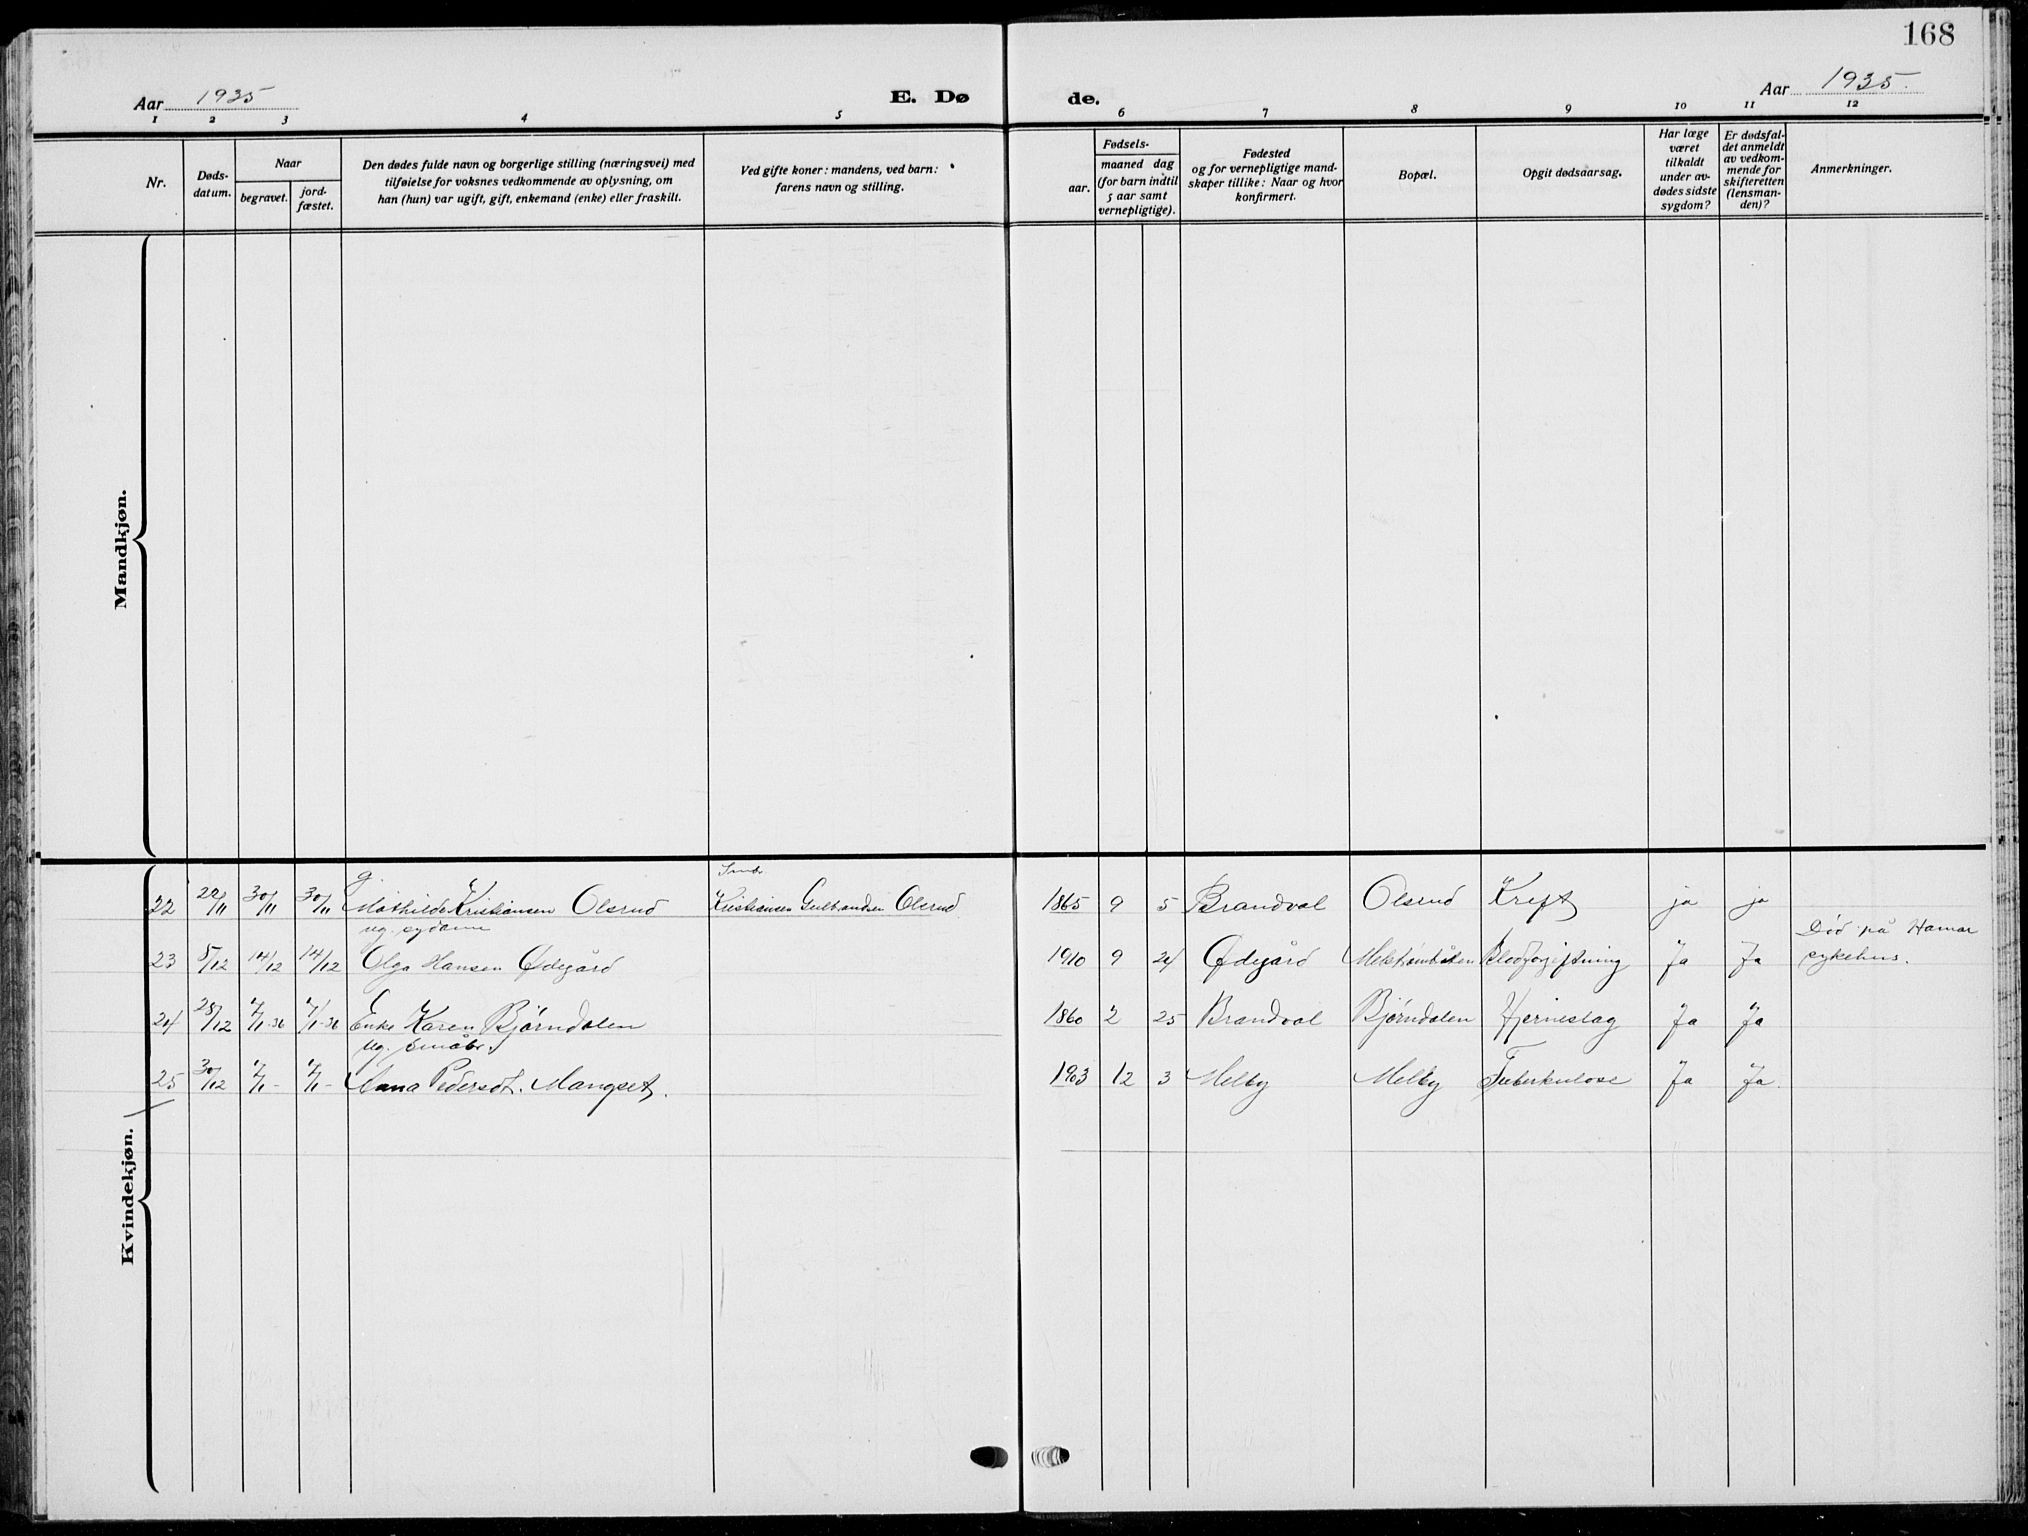 168
Aar 1935
E. Dø
de.
Aar 1935.
1 2 3 4 5 6 7 8 9 10 11 12
Nr.
Døds-
datum.
Naar
begravet.
jord-
fæstet.
Den dødes fulde navn og borgerlige stilling (næringsvei) med
tilføielse for voksnes vedkommende av oplysning, om
han (hun) var ugift, gift, enkemand (enke) eller fraskilt.
Ved gifte koner: mandens, ved barn:
farens navn og stilling.
Fødsels-
aar.
maaned dag
(for barn indtil
5 aar samt
vernepligtige).
Fødested
og for vernepligtige mand-
skaper tillike: Naar og hvor
konfirmert.
Bopæl.
Opgit dødsaarsag.
Har læge
været
tilkaldt
under av-
dødes sidste
sygdom?
Er dødsfal-
det anmeldt
av vedkom-
mende for
skifteretten
(lensman-
den)?
Anmerkninger.
Mandkjøn.
Kvindekjøn.
g. Smbr
22 22/11 30/11 30/11 Mathilde Kristiansen Olsrud Kristiansen Gulbrandsen Olsrud. 1865 9 5 Brandval Olsrud Kreft ja ja
ug. sydame Død på Hamar
23 8/12 14/12 14/12 Olga Hansen Ødegård 1910 9 24 Ødegård Blodforgiftning Ja Ja sykehus.
24 28/12 4/1-36 4/1-36 Enke Karen Bjørndalen 1860 2 25 Brandval Bjørndalen Hjerneslag Ja Ja
ug. småbr.
25 30/12 4/1- 4/1- Anna Pedersdt. Mangset. 1903 12 3 Melby Melby Tuberkulose Ja Ja.